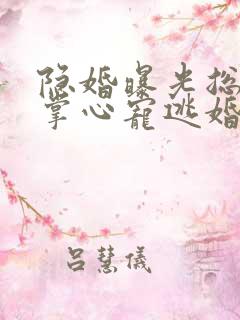 隐婚曝光总
掌心宠逃婚
吕慧仪